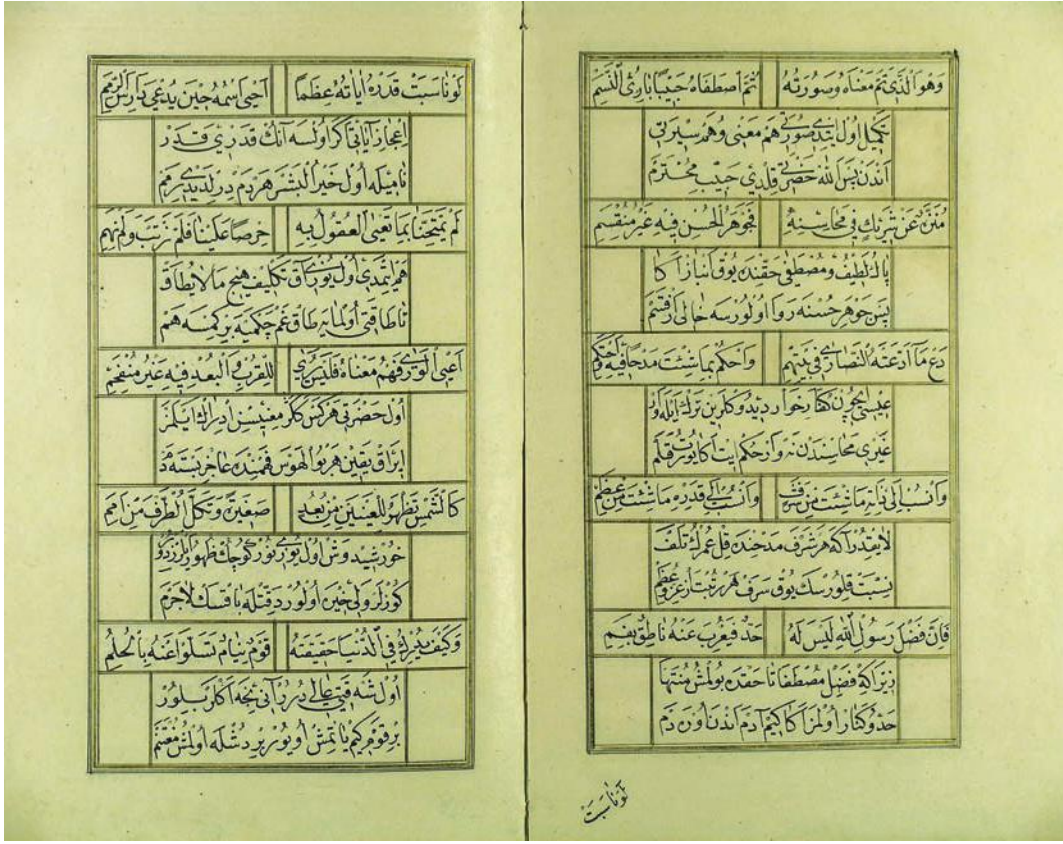 وَهُوَ الَّذِي تَمَّ مَعْنَاهُ وَصُورَتُهُ ثُمَّ اصْطَفَاهُ حَبِيبًا بَارِئُ النَّسَمِ
تكميل اول ايتدى صورتى هم معنى وهم سيرتى
آندن پس الله حضرتى قلدى حبيب محترم
مُنَزَّهٌ عَنْ شَرِيكٍ فِي مَحَاسِنِهِ فَجَوْهَرُ الْحُسْنِ فِيهِ غَيْرُ مُنْقَسِمِ
پاك لطيف ومصطفى حقنده يوق انباز اكا
پس جوهر حسنه روا اولورسه خالى از قسم
دَعْ مَا ادَّعَتْهُ النَّصَارَى فِي نَبِيِّهِمِ وَاحْكُمْ بِمَا شِئْتَ مَدْحًا فِيهِ وَاحْتَكِمِ
عيسى ايچون كفار خوار ديدوكلرين ترك ايله
غيرى محاسندن نه وار حكم ايت اكا يورت قلم
وَانْسُبْ إِلَى ذَاتِهِ مَا شِئْتَ مِنْ شَرَفٍ وَانْسُبْ إِلَى قَدْرِهِ مَا شِئْتَ مِنْ عِظَمِ
لايقدر آكه هر شرف مدحنده قل عمرك تلف
نسبت قلورسك يوق سرف هر رتبت از عز وعظم
فَإِنَّ فَضْلَ رَسُولِ اللهِ لَيْسَ لَهُ حَدٌّ فَيُعْرِبَ عَنْهُ نَاطِقٌ بِفَمِ
زيرا كه فضل مصطفا تا حقده بولمش منتها
حد وكنار اولمز اكا كيم آدم اندن اوره دم
لو ناسبت
لَوْ نَاسَبَتْ قَدْرَهُ آيَاتُهُ عِظَمًا أَحْيَى اسْمُهُ حِينَ يُدْعَى دَارِسَ الرِّمَمِ
اعجاز آياتى اكر اولسه آنك قدرى قدر
ناميله اول خير البشر هردم دريلديدى رمم
لَمْ يَمْتَحِنَّا بِمَا تَعْيَى الْعُقُولُ بِهِ حِرْصًا عَلَيْنَا فَلَمْ نَرْتَبْ وَلَمْ نَهِمِ
هم ايتمدى اول يوزى آق تكليف هيچ ما لا يطاق
تا طاقتى اولمايه طاق غم چكميه بر كمسه هم
أَعْيَى الْوَرَى فَهْمُ مَعْنَاهُ فَلَيْسَ يُرَى لِلْقُرْبِ وَالْبُعْدِ فِيهِ غَيْرُ مُنْفَحِمِ
اول حضرتى هر كس كلر معنيسن ادراك ايلمز
ايراق يقين هر بو الهوس فهمنده عاجز بسته دم
كَالشَّمْسِ تَظْهَرُ لِلْعَيْنَيْنِ مِنْ بُعُدٍ صَغِيرَةً وَتُكِلُّ الطَّرْفَ مِنْ أَمَمِ
خورشيدوش اول يوزى نور كوچك ظهور ايلر
كوزلر ولى خيره اولور دقتله باقسك لاجرم
وَكَيْفَ يُدْرِكُ فِي الدُّنْيَا حَقِيقَتَهُ قَوْمٌ نِيَامٌ تَسَلَّوْا عَنْهُ بِالْحُلُمِ
اول شه قتى عاليدرر آنى نيجه اكلر بيلور
بر قوم كيم ياتمش اويور بر دشله اولمش مغتنم